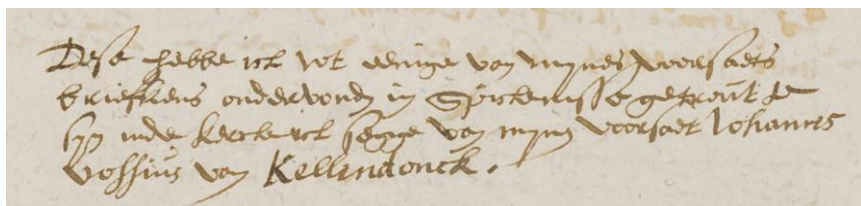 Dese hebbe ick wt eenige van mynes voorsaets
briefkens ondervonden in Spickenisse getrout te
syn inde kercke ick segge van myn voorsaet Johannes
Vossius van Kellendonck.